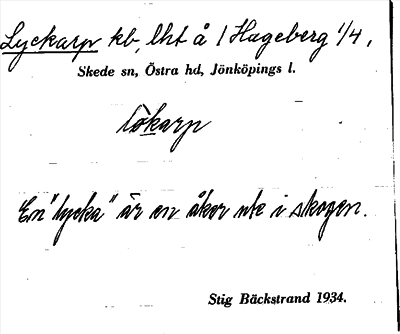 Lyckarp kb, lht å 1 Hageberg 1/4,
Skede sn, Östra hd, Jönköpings l.
En "lycka" är en åker ute i skogen.
Stig Bäckstrand 1934.